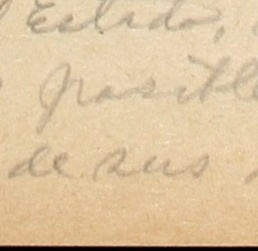 Estado,
posible
de sus